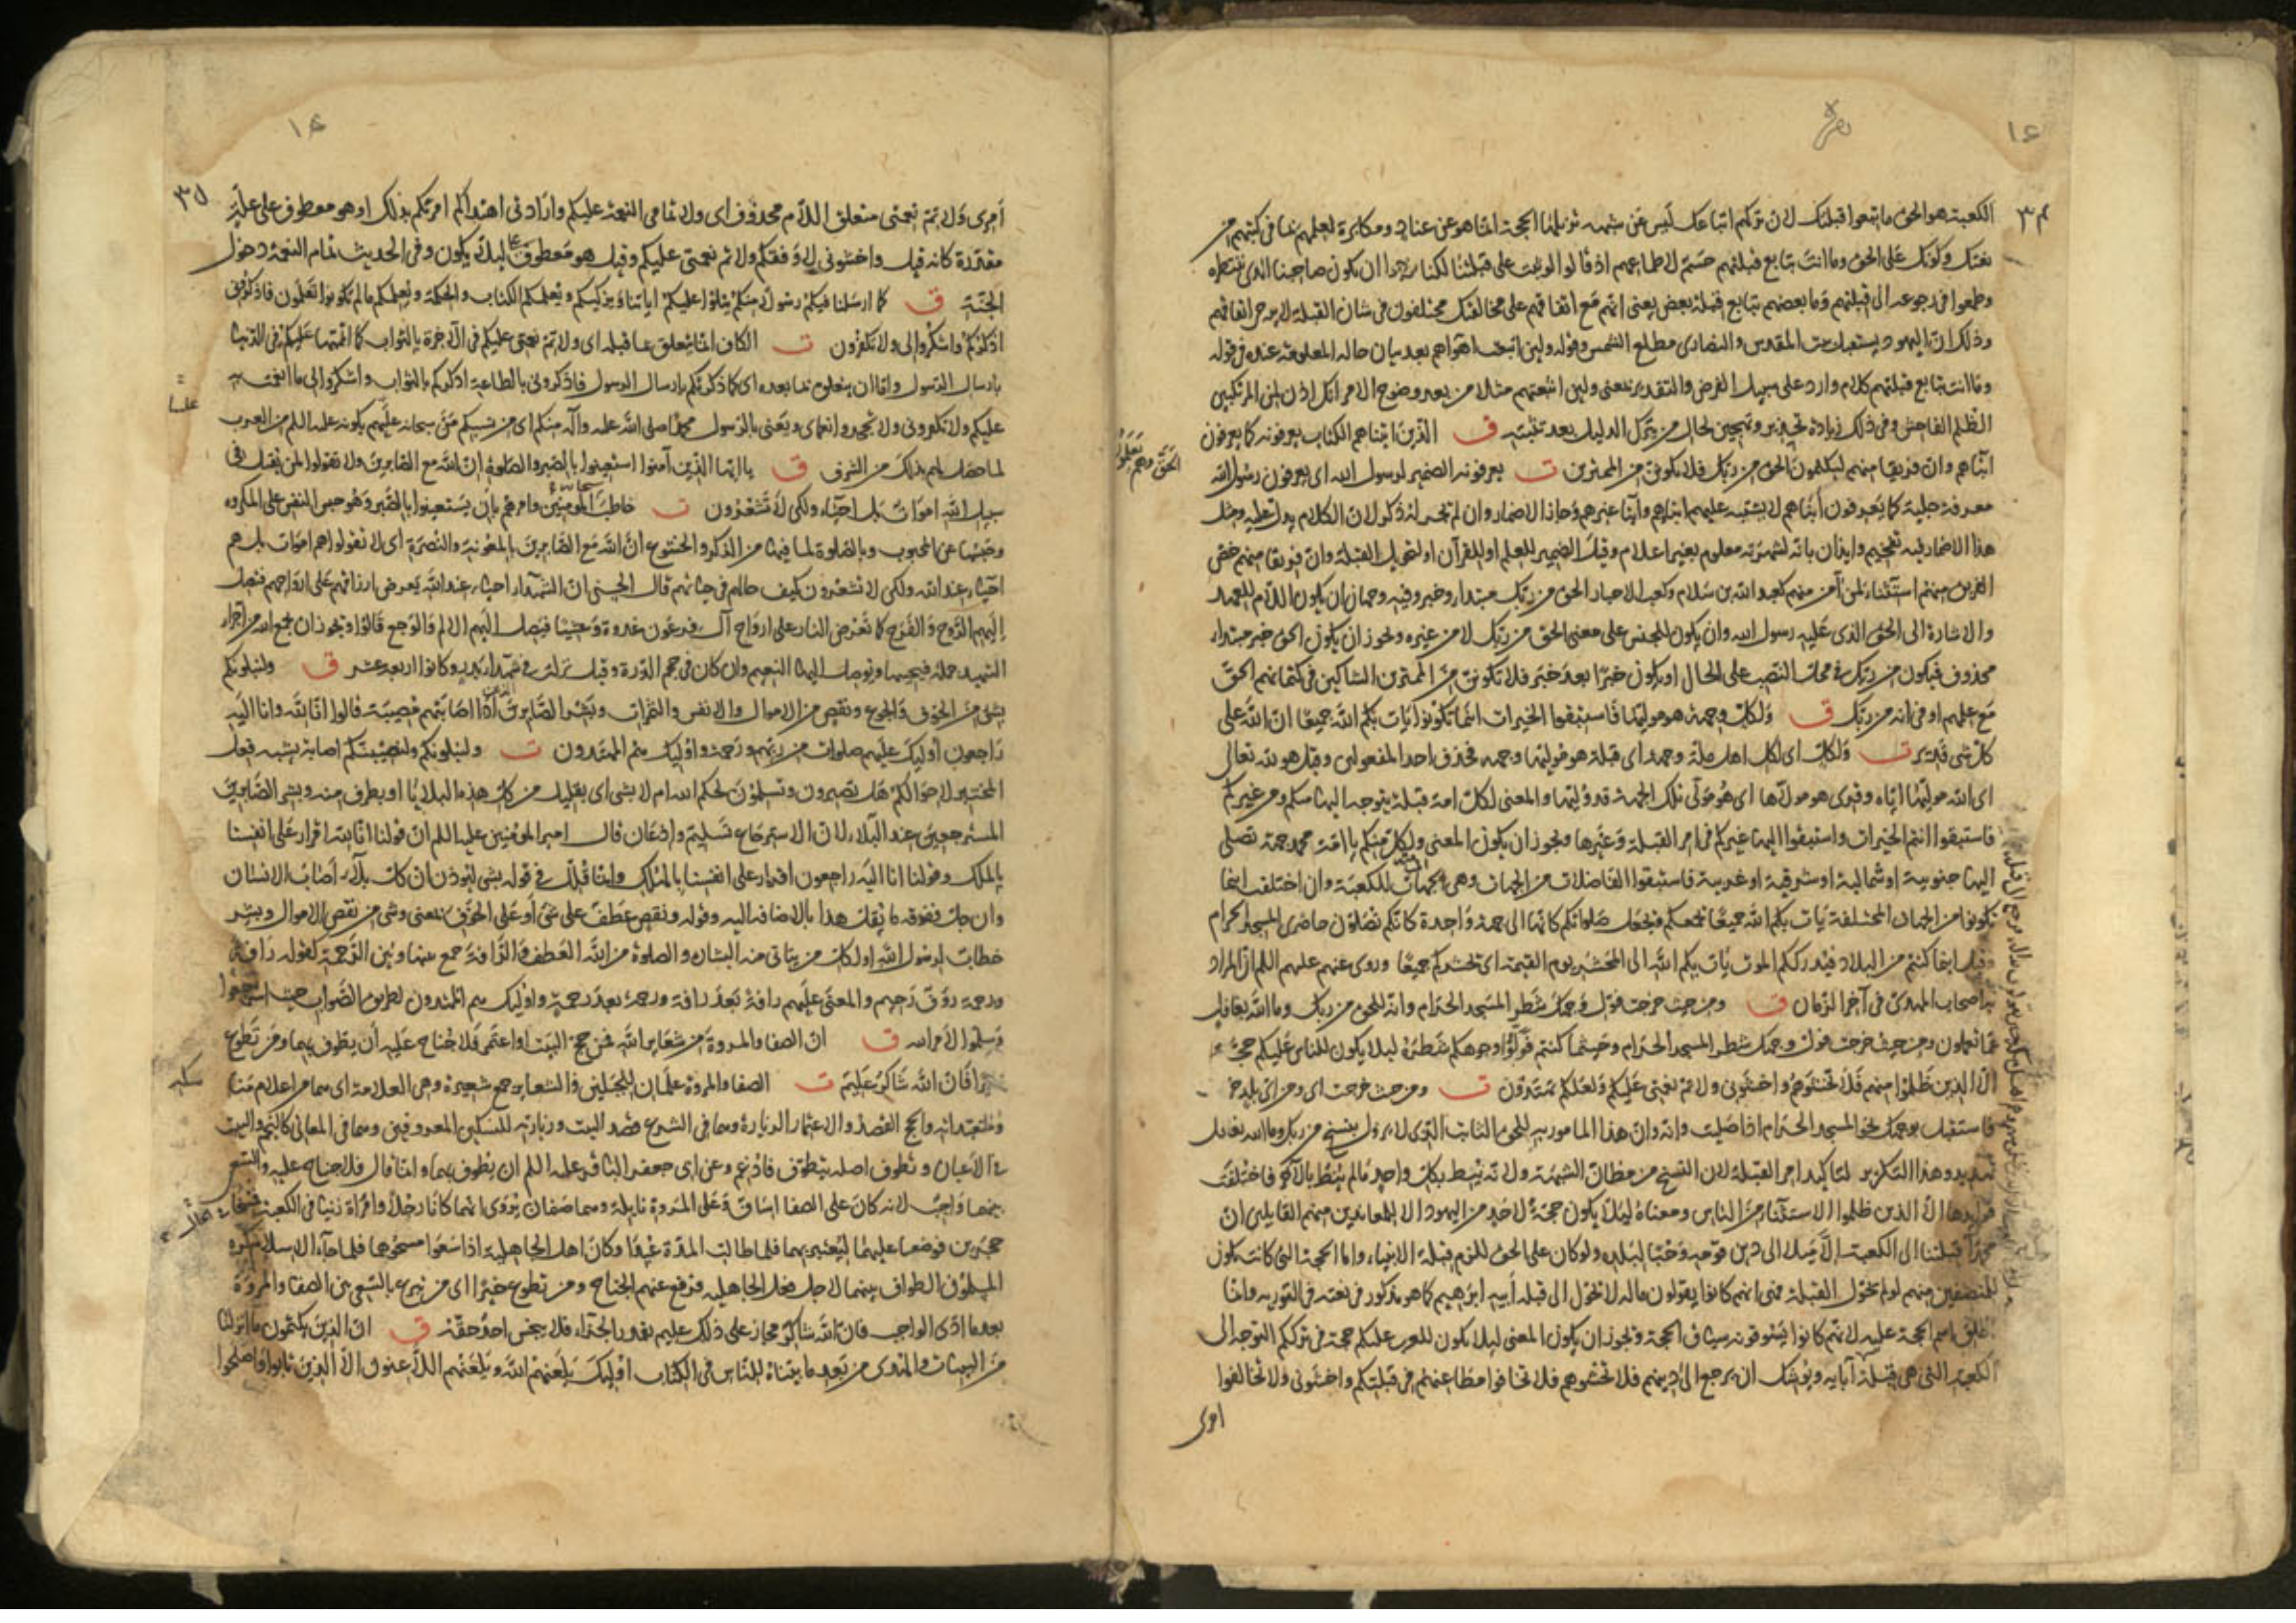 ١٤
بقره
٣٤
الكعبة هو الحق ما تبعوا قبلتك لان تركهم اتباعك ليس عن شبهة تزيلها الحجة انما هو عن عناد ومكابرة لعلمهم بما في كتبهم من
نعتك وكونك على الحق وما انت بتابع قبلتهم حسم لاطماعهم اذ قالوا لو ثبت على قبلتنا لكنا نرجوا ان يكون صاحبنا الذي ننتظره
وطمعوا في رجوعه الى قبلتهم وما بعضهم بتابع قبلة بعض يعني انهم مع اتفاقهم على مخالفتك مختلفون في شان القبلة لا يرجى اتفاقهم
وذلك ان اليهود يستقبل بيت المقدس والنصارى مطلع الشمس وقوله ولئن اتبعت اهواءهم بعد بيان حاله المعلومة عنده في قوله
وما انت بتابع قبلتهم كلام وارد على سبيل الفرض والتقدير بمعنى ولئن اتبعتهم مثلا من بعد وضوح الامر انك اذن لمن المرتكبين
الظلم الفاحش وفي ذلك زيادة تحذير وتهجين لحال من يترك الدليل بعد تبينه ق الذين اتيناهم الكتاب يعرفونه كما يعرفون
ابناءهم وان فريقا منهم ليكتمون الحق من ربك فلا تكونن من الممترين ت يعرفونه الضمير لرسول الله اى يعرفون رسول الله
الحق وهم يعلمون
معرفة جلية كما يعرفون ابناءهم لا يشتبه عليهم ابناؤهم وابناء غيرهم وجاز الاضمار وان لم يجر له ذكر لان الكلام يدل عليه ومثل
هذا الاضمار فيه تفخيم وايذان بانه لشهرته معلوم بغير اعلام وقيل الضمير للعلم او للقرآن او لتحويل القبلة وان فريقا منهم خص
الفريق منهم استثناء لمن آمن منهم كعبد الله بن سلام وكعب الاحبار الحق من ربك مبتداء وخبر وفيه وجهان ان يكون اللام للعهد
والاشارة الى الحق الذي عليه رسول الله وان يكون للجنس على معنى الحق من ربك لا من غيره ويجوز ان يكون الحق خبر مبتداء
محذوف فيكون من ربك في محل النصب على الحال او يكون خبرا بعد خبر فلا تكونن من الممترين الشاكين في كتمانهم الحق
مع علمهم او في انه من ربك ق ولكل وجهة هو موليها فاستبقوا الخيرات اينما تكونوا يات بكم الله جميعا ان الله على
كل شىء قدير ت ولكل اى لكل اهل ملة وجهة اى قبلة هو موليها وجهه فحذف احد المفعولين وقيل هو لله تعالى
اى الله موليها اياه وقرى هو مولاها اى هو مولى تلك الجهة قد وليها والمعنى لكل امة قبلة يتوجه اليها منكم ومن غيركم
فاستبقوا انتم الخيرات واستبقوا اليها غيركم في امر القبلة وغيرها ويجوز ان يكون المعنى ولكل منكم يا امة محمد جهة تصلى
اليها جنوبية او شمالية او شرقية او غربية فاستبقوا الفاضلات من الجهات وهي الجهات للكعبة وان اختلفت اينما
تكونوا من الجهات المختلفة يات بكم الله جميعا يجمعكم ويجعل صلواتكم كانها الى جهة واحدة كانكم تصلون حاضرى المسجد الحرام
وقيل اينما كنتم من البلاد فيدرككم الموت يات بكم الله الى المحشر يوم القيمة اى يحشركم جميعا وروى عنهم عليهم اللم ان المراد
به اصحاب المهدى في آخر الزمان ق ومن حيث خرجت فول وجهك شطر المسجد الحرام وانه للحق من ربك وما الله بغافل
عما تعملون ومن حيث خرجت فول وجهك شطر المسجد الحرام وحيثما كنتم فولوا وجوهكم شطره لئلا يكون للناس عليكم حجة
الا الذين ظلموا منهم فلا تخشوهم واخشونى ولاتم نعمتى عليكم ولعلكم تهتدون ت ومن حيث خرجت اى ومن اى بلد خ
فاستقبل بوجهك نحو المسجد الحرام اذا صليت وانه وان هذا المامور به للحق الثابت الذى لا يزول بنسخ من ربك وما الله بغافل
تهديد وهذا التكرير لتاكيد امر القبلة لان النسخ من مظان الشبهة ولانه نيط بكل واحد ما لم ينط بالآخر فاختلفت
فوايدها الا الذين ظلموا الاستثناء من الناس ومعناه لئلا يكون حجة لاحد من اليهود الا للمعاندين منهم القايلين ان
محمدا قبلتنا الى الكعبة الا ميلا الى دين قومه وحبا لبلده ولو كان على الحق للزم قبلة الانبياء واما الحجة التى كانت تكون
للمنصفين منهم لو لم يحول القبلة فهى انهم كانوا يقولون ماله لا يحول الى قبلة ابيه ابرهيم كما هو مذكور في نعته في التورية وانما
اطلق اسم الحجة عليه لانهم كانوا يسوقونه سياق الحجة ويجوز ان يكون المعنى لئلا يكون للعرب عليكم حجة في ترككم التوجه الى
الكعبة التى هى قبلة آبايه ويوشك ان يرجع الى دينهم فلا تخشوهم فلا تخافوا مطاعنهم في قبلتكم واخشونى ولا تخالفوا
امرى
١٤
٣٥
امرى ولاتم نعمتى متعلق اللام محذوف اى ولاتمامى النعمة عليكم وارادتى اهتداكم امرتكم بذلك او هو معطوف على علة
مقدرة كانه قيل واخشونى لاوفقكم ولاتم نعمتى عليكم وقيل هو معطوف على ليلا يكون وفي الحديث تمام النعمة دخول
الجنة ق كما ارسلنا فيكم رسولا منكم يتلوا عليكم اياتنا ويزكيكم ويعلمكم الكتاب والحكمة ويعلمكم ما لم تكونوا تعلمون فاذكرونى
اذكركم واشكروا لى ولا تكفرون ت الكاف اما يتعلق بما قبله اى ولاتم نعمتى عليكم في الآخرة بالثواب كما اتممتها عليكم في الدنيا
بارسال الرسول واما ان يتعلق بما بعده اى كما ذكرتكم بارسال الرسول فاذكرونى بالطاعة اذكركم بالثواب واشكروا لى ما انعمت به
عليكم ولا تكفرونى ولا تجحدوا نعماى ويعنى بالرسول محمدا صلى الله عليه وآله منكم اى من نسبكم من سبحانه عليهم بكونه عليه اللم من العرب
لما حصل لهم بذلك من الشرف ق يا ايها الذين آمنوا استعينوا بالصبر والصلوة ان الله مع الصابرين ولا تقولوا لمن يقتل في
سبيل الله اموات بل احياء ولكن لا تشعرون ت خاطب المومنين وامرهم بان يستعينوا بالصبر وهو حبس النفس على المكروه
وحبسها عن المحبوب وبالصلوة لما فيها من الذكر والخشوع ان الله مع الصابرين بالمعونة والنصرة اى لا تقولوا هم اموات بل هم
احياء عند الله ولكن لا تشعرون كيف حالهم في حياتهم قال الحسن ان الشهداء احياء عند الله يعرض ارزاقهم على ارواحهم فيصل
اليهم الروح والفرح كما تعرض النار على ارواح آل فرعون غدوة وعشيا فيصل اليهم الالم والوجع قالوا ويجوز ان يجمع الله من اجزاء
الشهيد جملة فيحييها ويوصل اليها النعيم وان كان في حجم الذرة وقيل نزلت في شهداء بدر وكانوا اربعة عشر ق ولنبلونكم
بشىء من الخوف والجوع ونقص من الاموال والانفس والثمرات وبشر الصابرين الذين اذا اصابتهم مصيبة قالوا انا لله وانا اليه
راجعون اوليك عليهم صلوات من ربهم ورحمة واوليك هم المهتدون ت ولنبلونكم ولنصيبنكم اصابة يشبه فعل
المختبر لاحوالكم هل تصبرون وتسلمون لحكم الله ام لا بشىء اى بقليل من كل هذه البلايا او بطرف منه وبشر الصابرين
المسترجعين عند البلاء لان الاسترجاع تسليم واذعان قال امير المؤمنين عليه اللم ان قولنا انا لله اقرار على انفسنا
بالملك وقولنا انا اليه راجعون اقرار على انفسنا بالهلك وانما قلل في قوله بشىء ليوذن ان كل بلاء اصاب الانسان
وان جل ففوقه ما يقل هذا بالاضافة اليه وقوله ونقص عطف على شىء او على الخوف بمعنى وشىء من نقص الاموال وبشر
خطاب لرسول الله او لكل من يتاتى منه البشارة والصلوة من الله العطف والرافة جمع بينها وبين الرحمة كقوله رافة
ورحمة روف رحيم والمعنى عليهم رافة بعد رافة ورحمة بعد رحمة واوليك هم المهتدون لطريق الصواب حيث استرجعوا
وسلموا الامر لله ق ان الصفا والمروة من شعاير الله فمن حج البيت او اعتمر فلا جناح عليه ان يطوف بهما ومن تطوع
خيرا فان الله شاكر عليم ت الصفا والمروة علمان للجبلين والشعاير جمع شعيرة وهى العلامة اى هما من اعلام مناسكه
ومتعبداته والحج القصد والاعتمار الزيارة وهما في الشرع قصد البيت وزيارته للنسكين المعروفين وهما في المعانى كالنجم والبيت
في الاعيان ويطوف اصله يتطوف فادغم وعن ابى جعفر الباقر عليه اللم ان يطوف بهما وانما قال فلا جناح عليه والسعى
بينهما واجب لانه كان على الصفا اساف وعلى المروة نايلة وهما صنمان يروى انهما كانا رجلا وامراة زنيا في الكعبة فمسخا
حجرين فوضعا عليهما ليعتبر بهما فلما طالت المدة عبدا وكان اهل الجاهلية اذا سعوا مسحوهما فلما جاء الاسلام كره
المسلمون الطواف بينهما لاجل فعل الجاهلية فرفع عنهم الجناح ومن تطوع خيرا اى من تبرع بالسعى بين الصفا والمروة
بعد ما ادى الواجب فان الله شاكر مجاز على ذلك عليم بقدر الجزاء فلا يبخس احدا حقه ق ان الذين يكتمون ما انزلنا
من البينات والهدى من بعد ما بيناه للناس في الكتاب اوليك يلعنهم الله ويلعنهم اللاعنون الا الذين تابوا واصلحوا